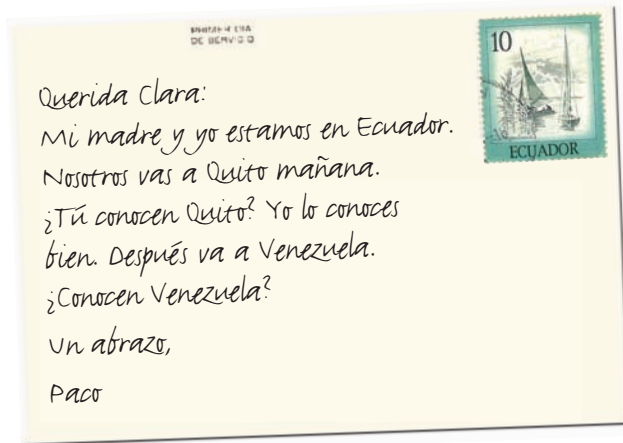 PRIMER DIA
DE SERVICIO
10
ECUADOR
Querida Clara:
Mi madre y yo estamos en Ecuador.
Nosotros vas a Quito mañana.
¿Tú conocen Quito? Yo lo conoces
bien. Después va a Venezuela.
¿Conocen Venezuela?
Un abrazo,
Paco